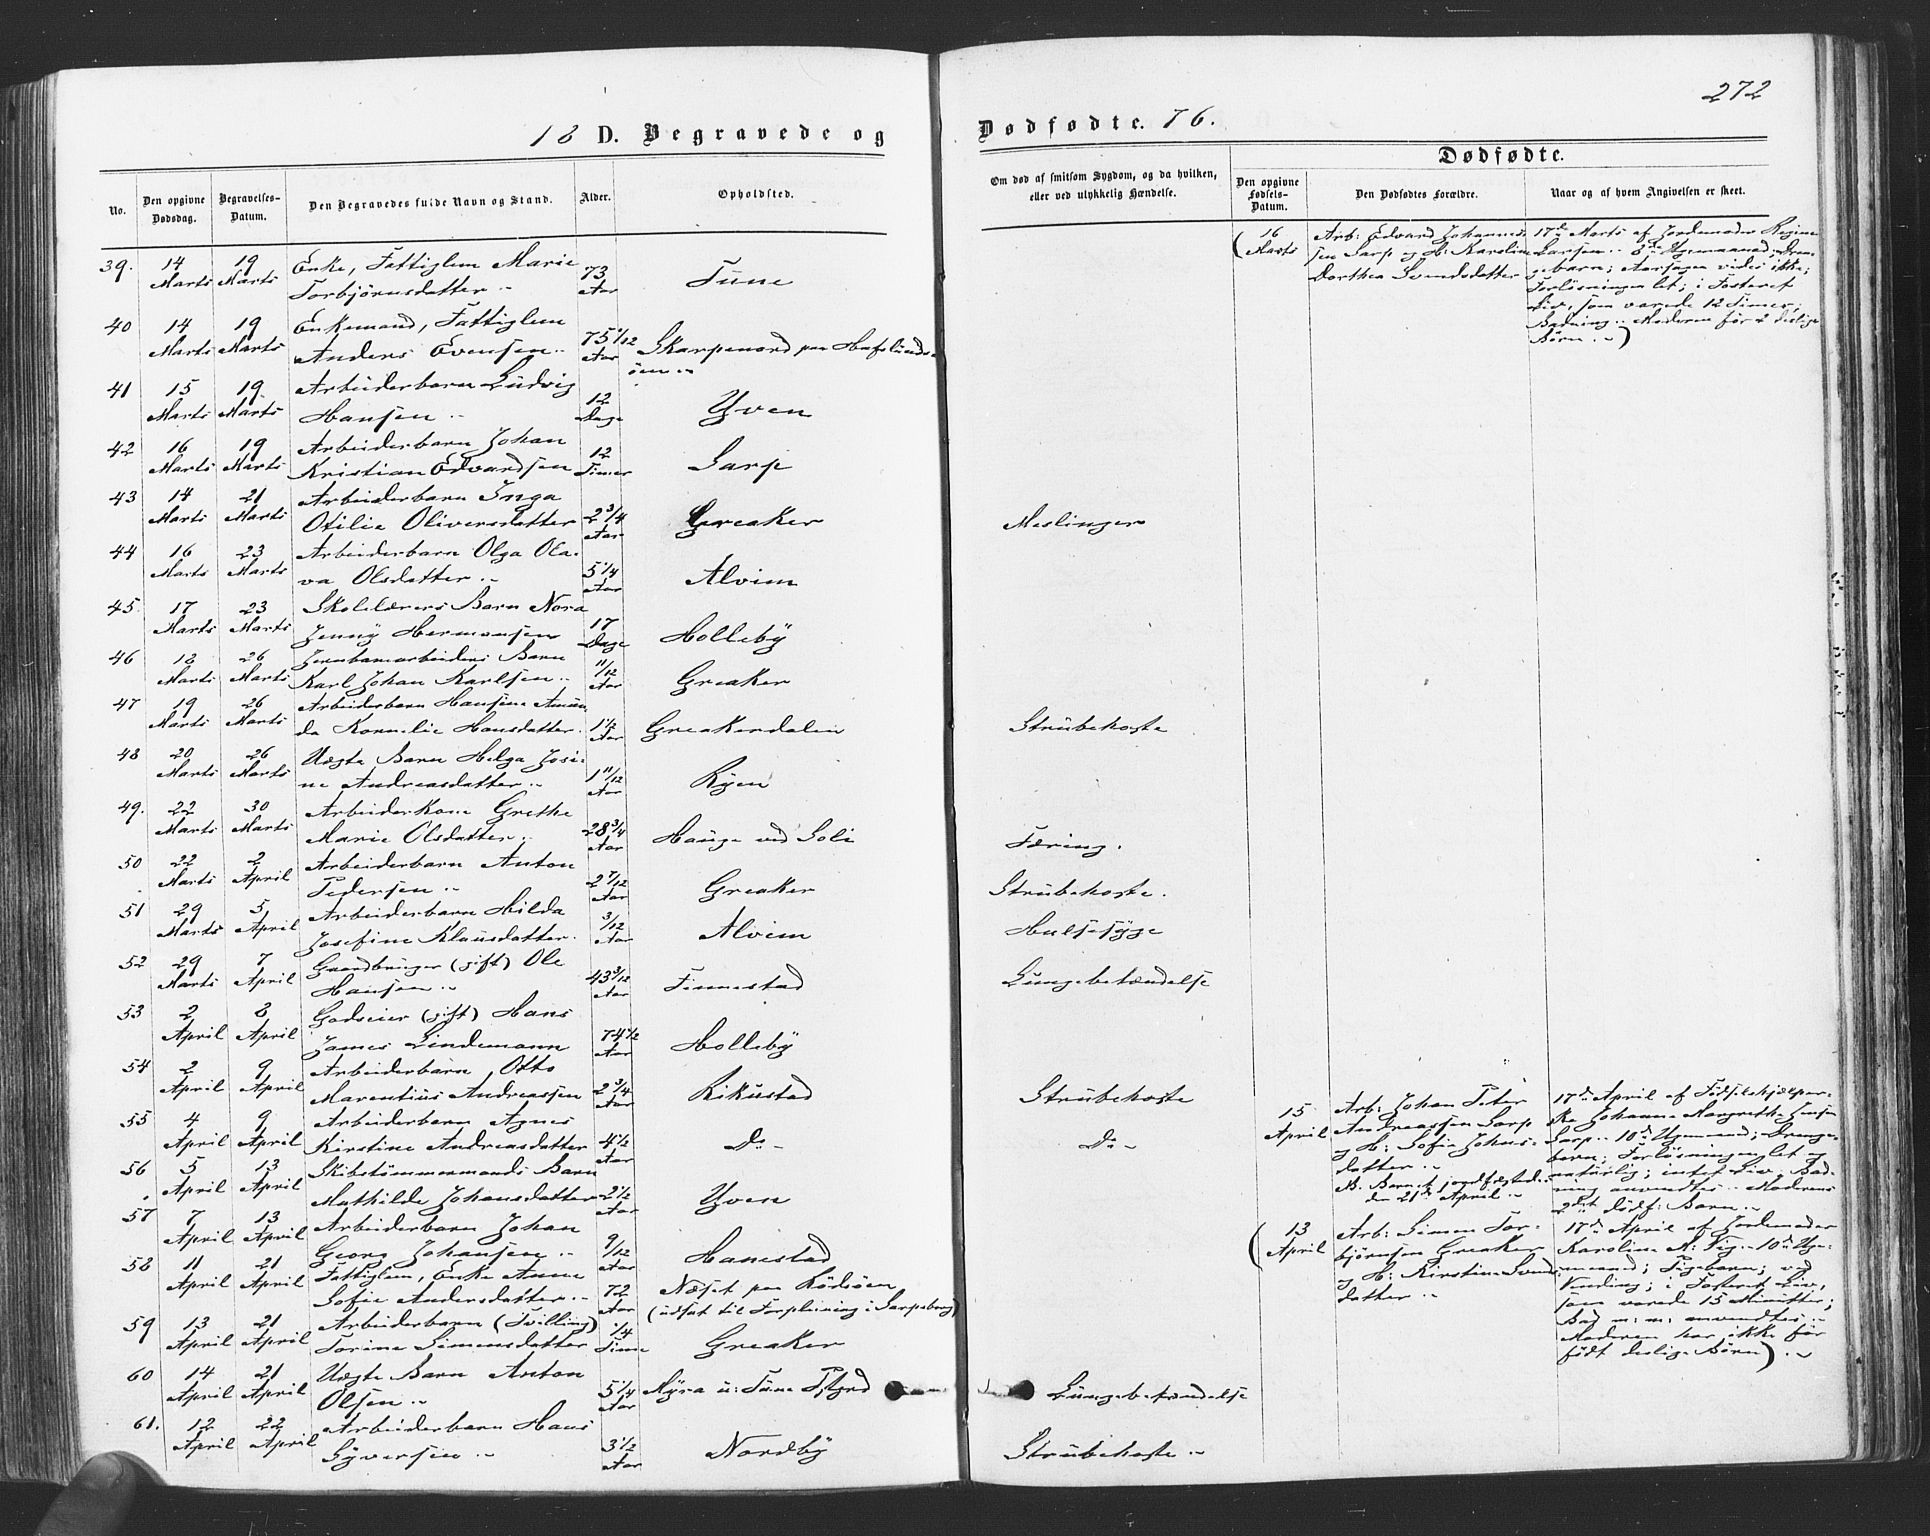 272
18 D. Begravede og
Dødfødte. 76.
No.
Den opgivne Dødsdag.
Begravelses-Datum.
Den Begravedes fulde Navn og Stand.
Alder.
Opholdsted.
Om død af smitsom Sygdom, og da hvilken, eller ved ulykkelig Hændelse.
Dødfødte.
Den opgivne Fødsels-Datum.
Den Dødfødtes Forældre.
Naar og af hvem Angivelsen er skeet.
39. 14 Marts 19 Marts Enke, Fattiglem Marie Torbjørnsdatter 73 Aar Tune
40 14 Marts 19 Marts Enkemand, Fattiglem Anders Evensen 75 1/12 Aar Skarpenord paa Hafslundsøen
41 15 Marts 19 Marts Arbeiderbarn Ludvig Hansen 12 Dage Yven
42 16 Marts 19 Marts Arbeiderbarn Johan Kristian Edvardsen 12 Timer Sarp
43 14 Marts 21 Marts Arbeiderbarn Inga Otilie Oliversdatter 2 3/4 Aar Greaker Meslinger
44 16 Marts 23 Marts Arbeiderbarn Olga Olava Olsdatter 5 1/4 Aar Alvim
45. 17 Marts 23 Marts Skolelærers Barn Nora Jenny Hermansen 17 Dage Holleby
46 18 Marts 26 Marts Jernbanearbeiders Barn Karl Johan Karlsen 11/12 Aar Greaker
47 19 Marts 26 Marts Arbeiderbarn Hansine Amanda Kornelie Hansdatter 1 1/2 Aar Greakerdalen Strubehoste
48 20 Marts 26 Marts Uægte Barn Helga Josine Andreasdatter 1 11/12 Aar Ryen
49. 22 Marts 30 Marts Arbeiderkone Grethe Marie Olsdatter 28 3/4 Aar Hauge ved Soli Tæring.
50 22 Marts 2 April Arbeiderbarn Anton Pedersen 2 7/12 Aar Greaker Strubehoste.
51 29 Marts 5 April Arbeiderbarn Hilda Josefine Klausdatter 3/12 Aar Alvim Halssyge
52 29 Marts 7 April Gaardbruger (gift) Ole Hansen 43 3/12 Aar Finnestad Lungebetændelse
53 2 April 8 April Godseier (gift) Hans James Lindemann 74 1/2 Aar Holleby
54 2 April 9 April Arbeiderbarn Otto Marentius Andreassen 2 3/4 Aar Rikustad Strubehoste
55 4 April 9 April Arbeiderbarn Agnes Kirstine Andreasdatter 4 1/2 Aar Do Do
56 5 April 13 April Skibstømmermands Barn Mathilde Johansdatter 2 1/2 Aar Yven
57 7 April 13 April Arbeiderbarn Johan Georg Johansen 9/12 Aar Hanestad
58 11 April 21 April Fattiglem, Enke Anne Sofie Andersdatter 72 Aar Næset paa Rørsøen (udsat til Forpleining i Sarpsborg)
59 13 April 21 April Arbeiderbarn (Tvilling) Torine Simensdatter 1/4 Time Greaker
60 14 April 21 April Uægte Barn Anton Olsen 5 1/4 Aar Myra u: Tune Pstgrd Lungebetændelse
61. 12 April 22 April Arbeiderbarn Hans Syversen 3 1/2 Aar Nordby Strubehoste
(16 Marts
Arb: Edvard Johannessen Sarp og H: Karoline Dorthea Svendsdatter
17de Marts af Jordemoder Regine Larsen 8de Ugemaaned; Drengebarn; Aarsagen vides ikke; Forløsningen let; i Fosteret Liv, som varede 12 Timer; Badning. Moderen før 2 deslige Børn.)
15 April
Arb: Johan Peter Andreassen Sarp og H: Sofie Johnsdatter
NB. Barnet jordfæstedes den 21de April
17de April af Fødselshjælperske Johanne Margrethe Jensen Sarp 10de Ugemaaned; Drengebarn; Forløsningen let og naturlig; intet Liv. Badning anvendtes. Moderens 2det dødf: Barn
(13 April
Arb: Simen Torbjørnsen Greaker og H: Kirstine Svendsdatter
17de April af Jordemoder Karoline A: Vig. 10de Ugemaaned; Pigebarn; ved Vending; i Fosteret Liv, som varede 15 Minutter; Bad m: m: anvendtes. Moderen har ikke før født deslige Børn)